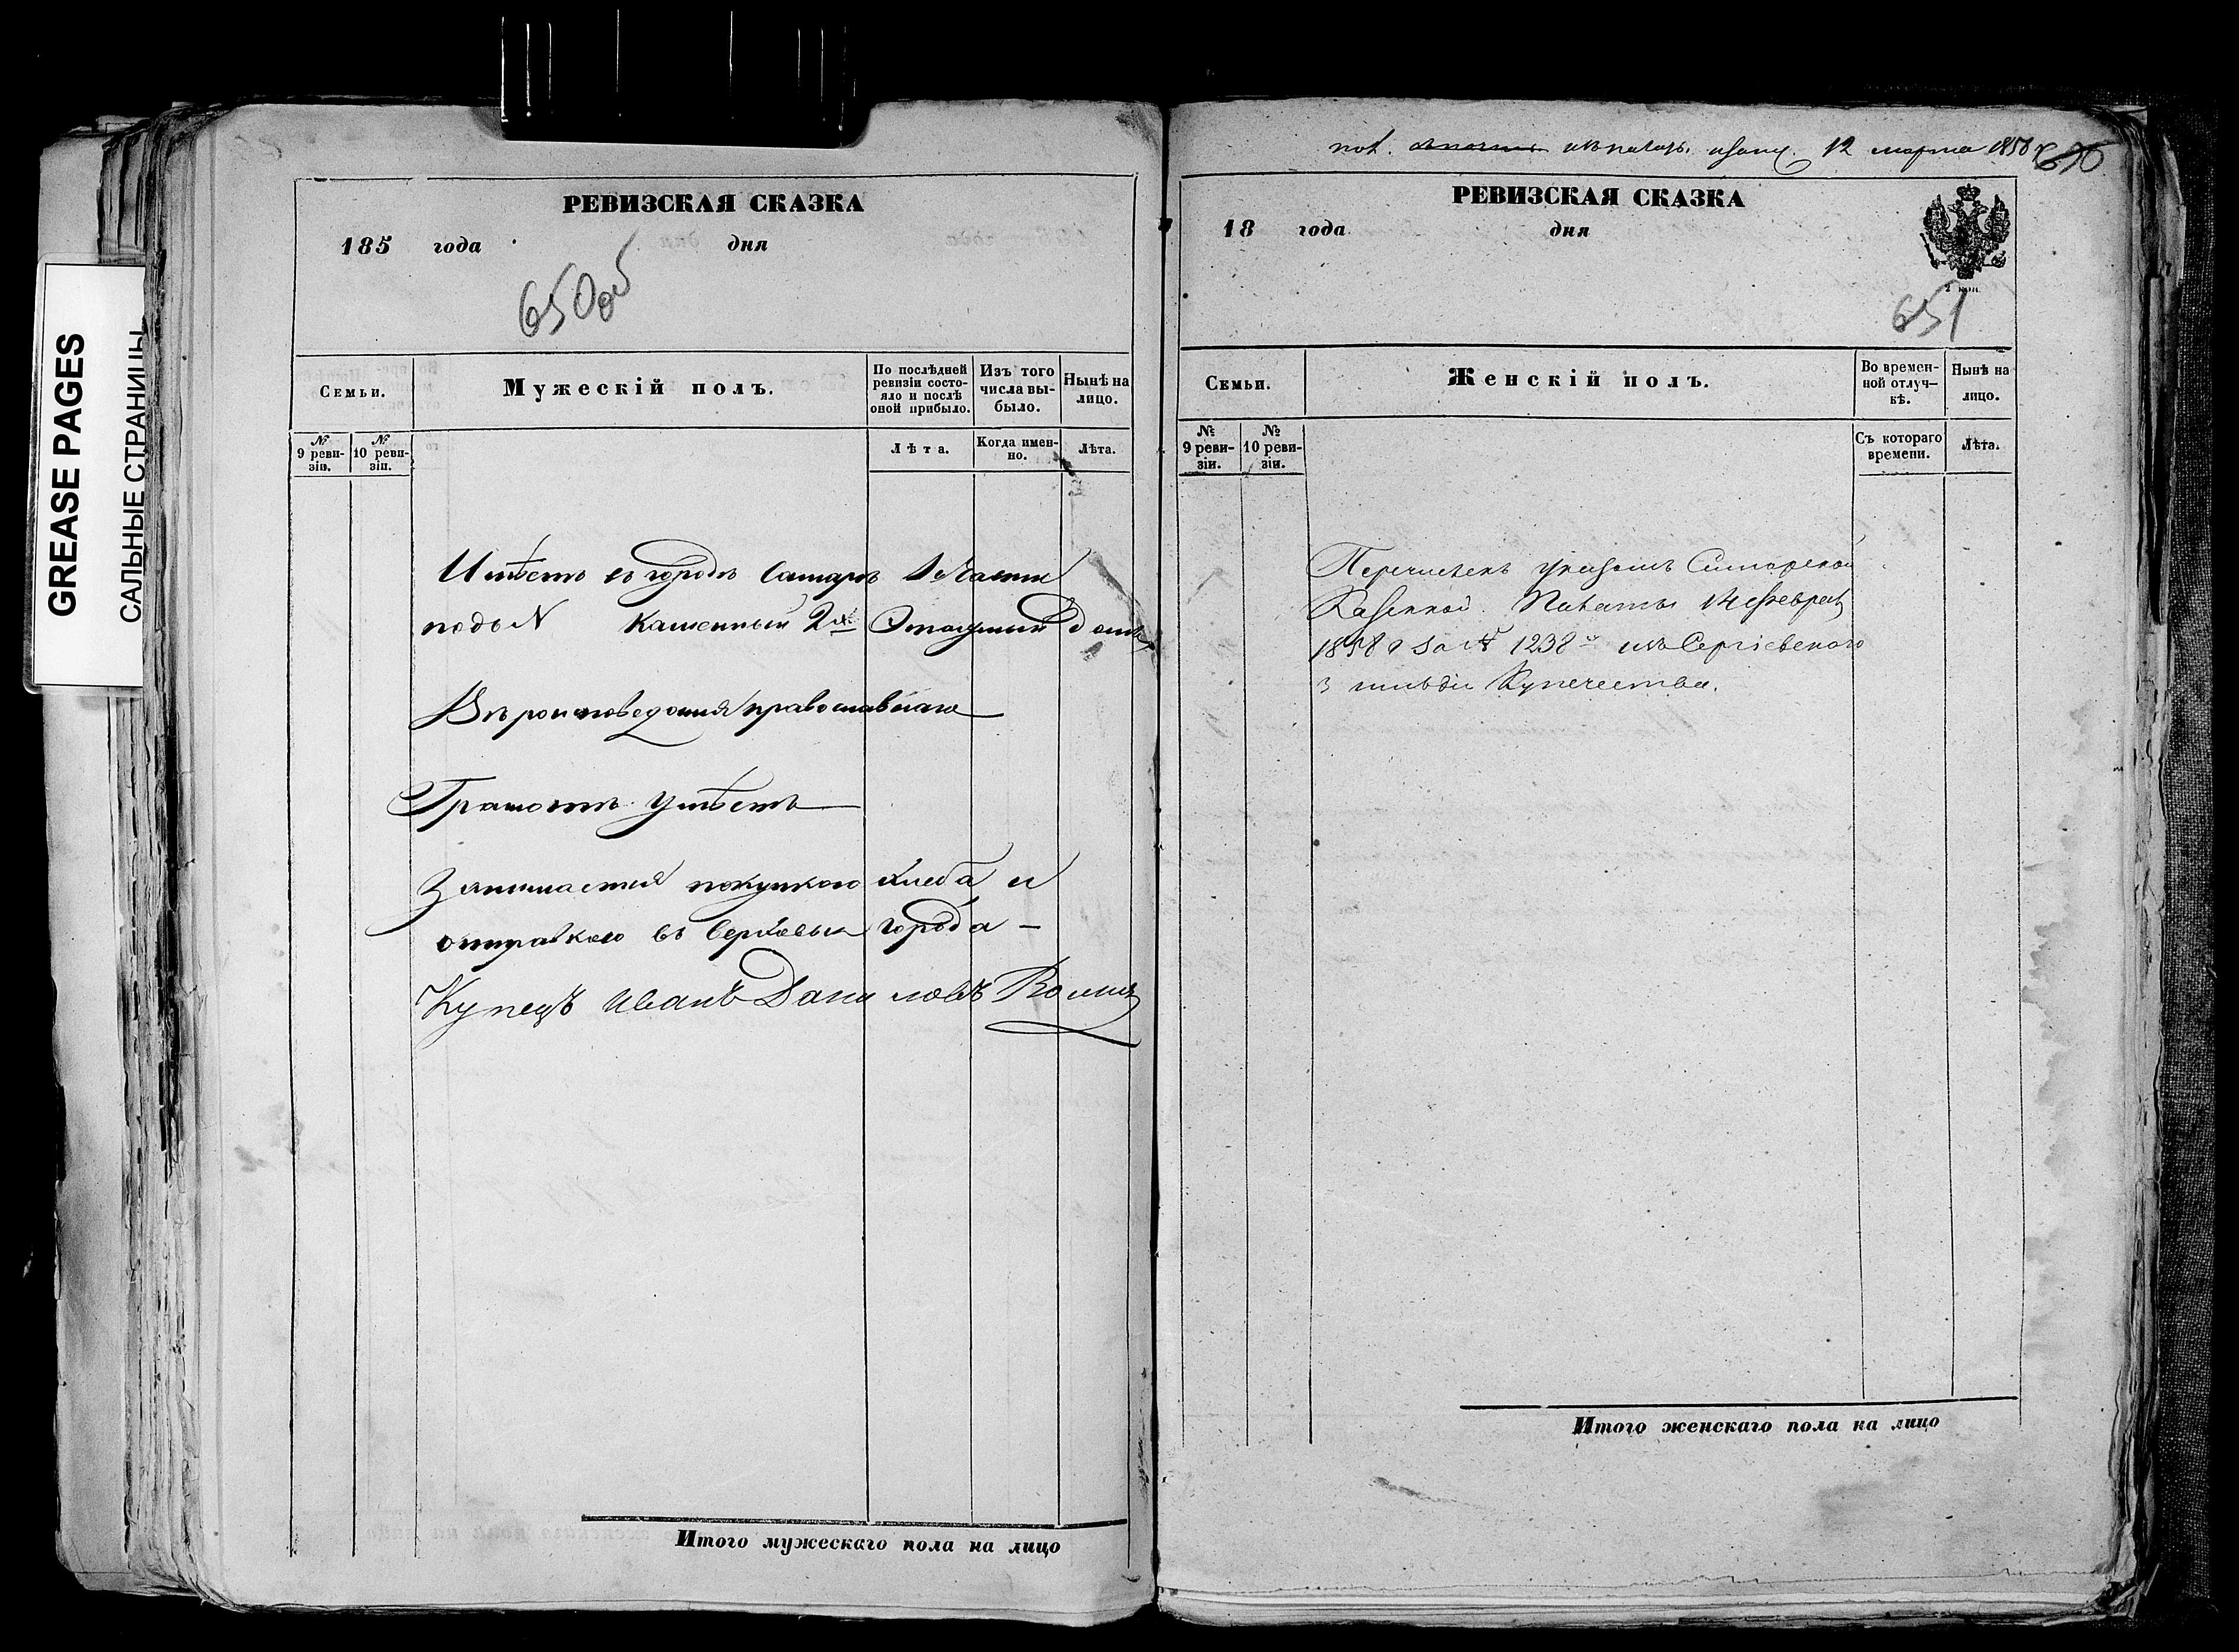 GREASE PAGES
САЛЬНЫЕ СТРАНИЦЫ
РЕВИЗСКАЯ СКАЗКА
185 года дня
650об
Семьи.
Мужескій полъ.
По послѣдней ревизіи состояло и послѣ оной прибыло.
Изъ того числа выбыло.
Нынѣ на лицо.
№ 9 ревизіи.
№ 10 ревизіи.
Лѣта.
Когда именно.
Лѣта.
Имѣетъ въ городѣ Самарѣ 1 Части
подъ N Каменный 2хъ Этажный домъ
Вѣроисповеданія православнаго
Грамотѣ умѣетъ
Занимается покупкою хлеба и
отправкою въ верховыя города
Купецъ Иванъ Даниловъ
Итого мужескаго пола на лицо
пол. 12 марта 1858 г.
РЕВИЗСКАЯ СКАЗКА
18 года дня
651
Семьи.
Женскій полъ.
Во временной отлучкѣ.
Нынѣ на лицо.
№ 9 ревизіи.
№ 10 ревизіи.
Съ котораго времени.
Лѣта.
Перечисленъ указомъ Самарской
Казенной Палаты 14 февраля
1858 г за № 1238 изъ Сергіевскаго
3 гильдіи Купечества.
Итого женскаго пола на лицо